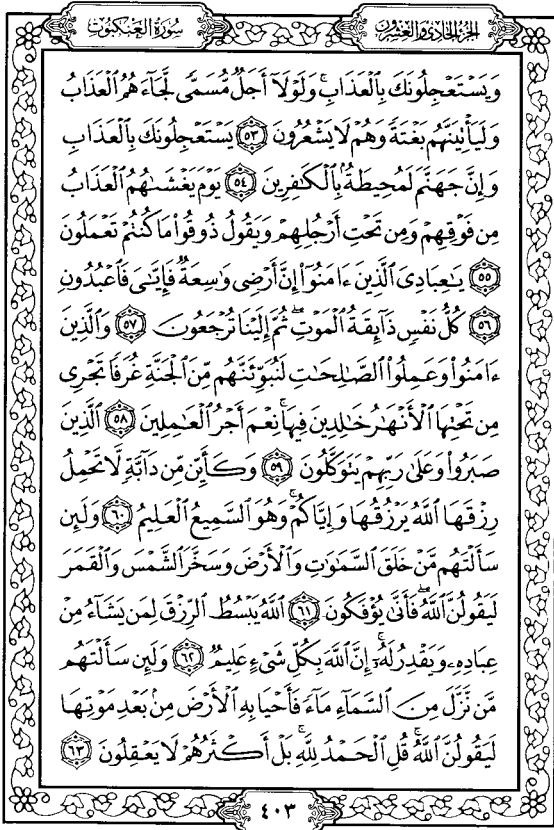 سُورَةُ الْعَنْكَبُوتِ
الجُزْءُ الحَادِي وَالعِشْرُونَ
وَيَسْتَعْجِلُونَكَ بِٱلْعَذَابِ ۚ وَلَوْلَآ أَجَلٌ مُّسَمًّى لَّجَآءَهُمُ ٱلْعَذَابُ
وَلَيَأْتِيَنَّهُم بَغْتَةً وَهُمْ لَا يَشْعُرُونَ ٥٣ يَسْتَعْجِلُونَكَ بِٱلْعَذَابِ
وَإِنَّ جَهَنَّمَ لَمُحِيطَةٌۢ بِٱلْكَٰفِرِينَ ٥٤ يَوْمَ يَغْشَىٰهُمُ ٱلْعَذَابُ
مِن فَوْقِهِمْ وَمِن تَحْتِ أَرْجُلِهِمْ وَيَقُولُ ذُوقُوا۟ مَا كُنتُمْ تَعْمَلُونَ
٥٥ يَٰعِبَادِىَ ٱلَّذِينَ ءَامَنُوٓا۟ إِنَّ أَرْضِى وَٰسِعَةٌ فَإِيَّٰىَ فَٱعْبُدُونِ
٥٦ كُلُّ نَفْسٍ ذَآئِقَةُ ٱلْمَوْتِ ۖ ثُمَّ إِلَيْنَا تُرْجَعُونَ ٥٧ وَٱلَّذِينَ
ءَامَنُوا۟ وَعَمِلُوا۟ ٱلصَّٰلِحَٰتِ لَنُبَوِّئَنَّهُم مِّنَ ٱلْجَنَّةِ غُرَفًا تَجْرِى
مِن تَحْتِهَا ٱلْأَنْهَٰرُ خَٰلِدِينَ فِيهَا ۚ نِعْمَ أَجْرُ ٱلْعَٰمِلِينَ ٥٨ ٱلَّذِينَ
صَبَرُوا۟ وَعَلَىٰ رَبِّهِمْ يَتَوَكَّلُونَ ٥٩ وَكَأَيِّن مِّن دَآبَّةٍ لَّا تَحْمِلُ
رِزْقَهَا ٱللَّهُ يَرْزُقُهَا وَإِيَّاكُمْ ۚ وَهُوَ ٱلسَّمِيعُ ٱلْعَلِيمُ ٦٠ وَلَئِن
سَأَلْتَهُم مَّنْ خَلَقَ ٱلسَّمَٰوَٰتِ وَٱلْأَرْضَ وَسَخَّرَ ٱلشَّمْسَ وَٱلْقَمَرَ
لَيَقُولُنَّ ٱللَّهُ ۖ فَأَنَّىٰ يُؤْفَكُونَ ٦١ ٱللَّهُ يَبْسُطُ ٱلرِّزْقَ لِمَن يَشَآءُ مِنْ
عِبَادِهِۦ وَيَقْدِرُ لَهُۥٓ ۚ إِنَّ ٱللَّهَ بِكُلِّ شَىْءٍ عَلِيمٌ ٦٢ وَلَئِن سَأَلْتَهُم
مَّن نَّزَّلَ مِنَ ٱلسَّمَآءِ مَآءً فَأَحْيَا بِهِ ٱلْأَرْضَ مِنۢ بَعْدِ مَوْتِهَا
لَيَقُولُنَّ ٱللَّهُ ۚ قُلِ ٱلْحَمْدُ لِلَّهِ ۚ بَلْ أَكْثَرُهُمْ لَا يَعْقِلُونَ ٦٣
٤٠٣